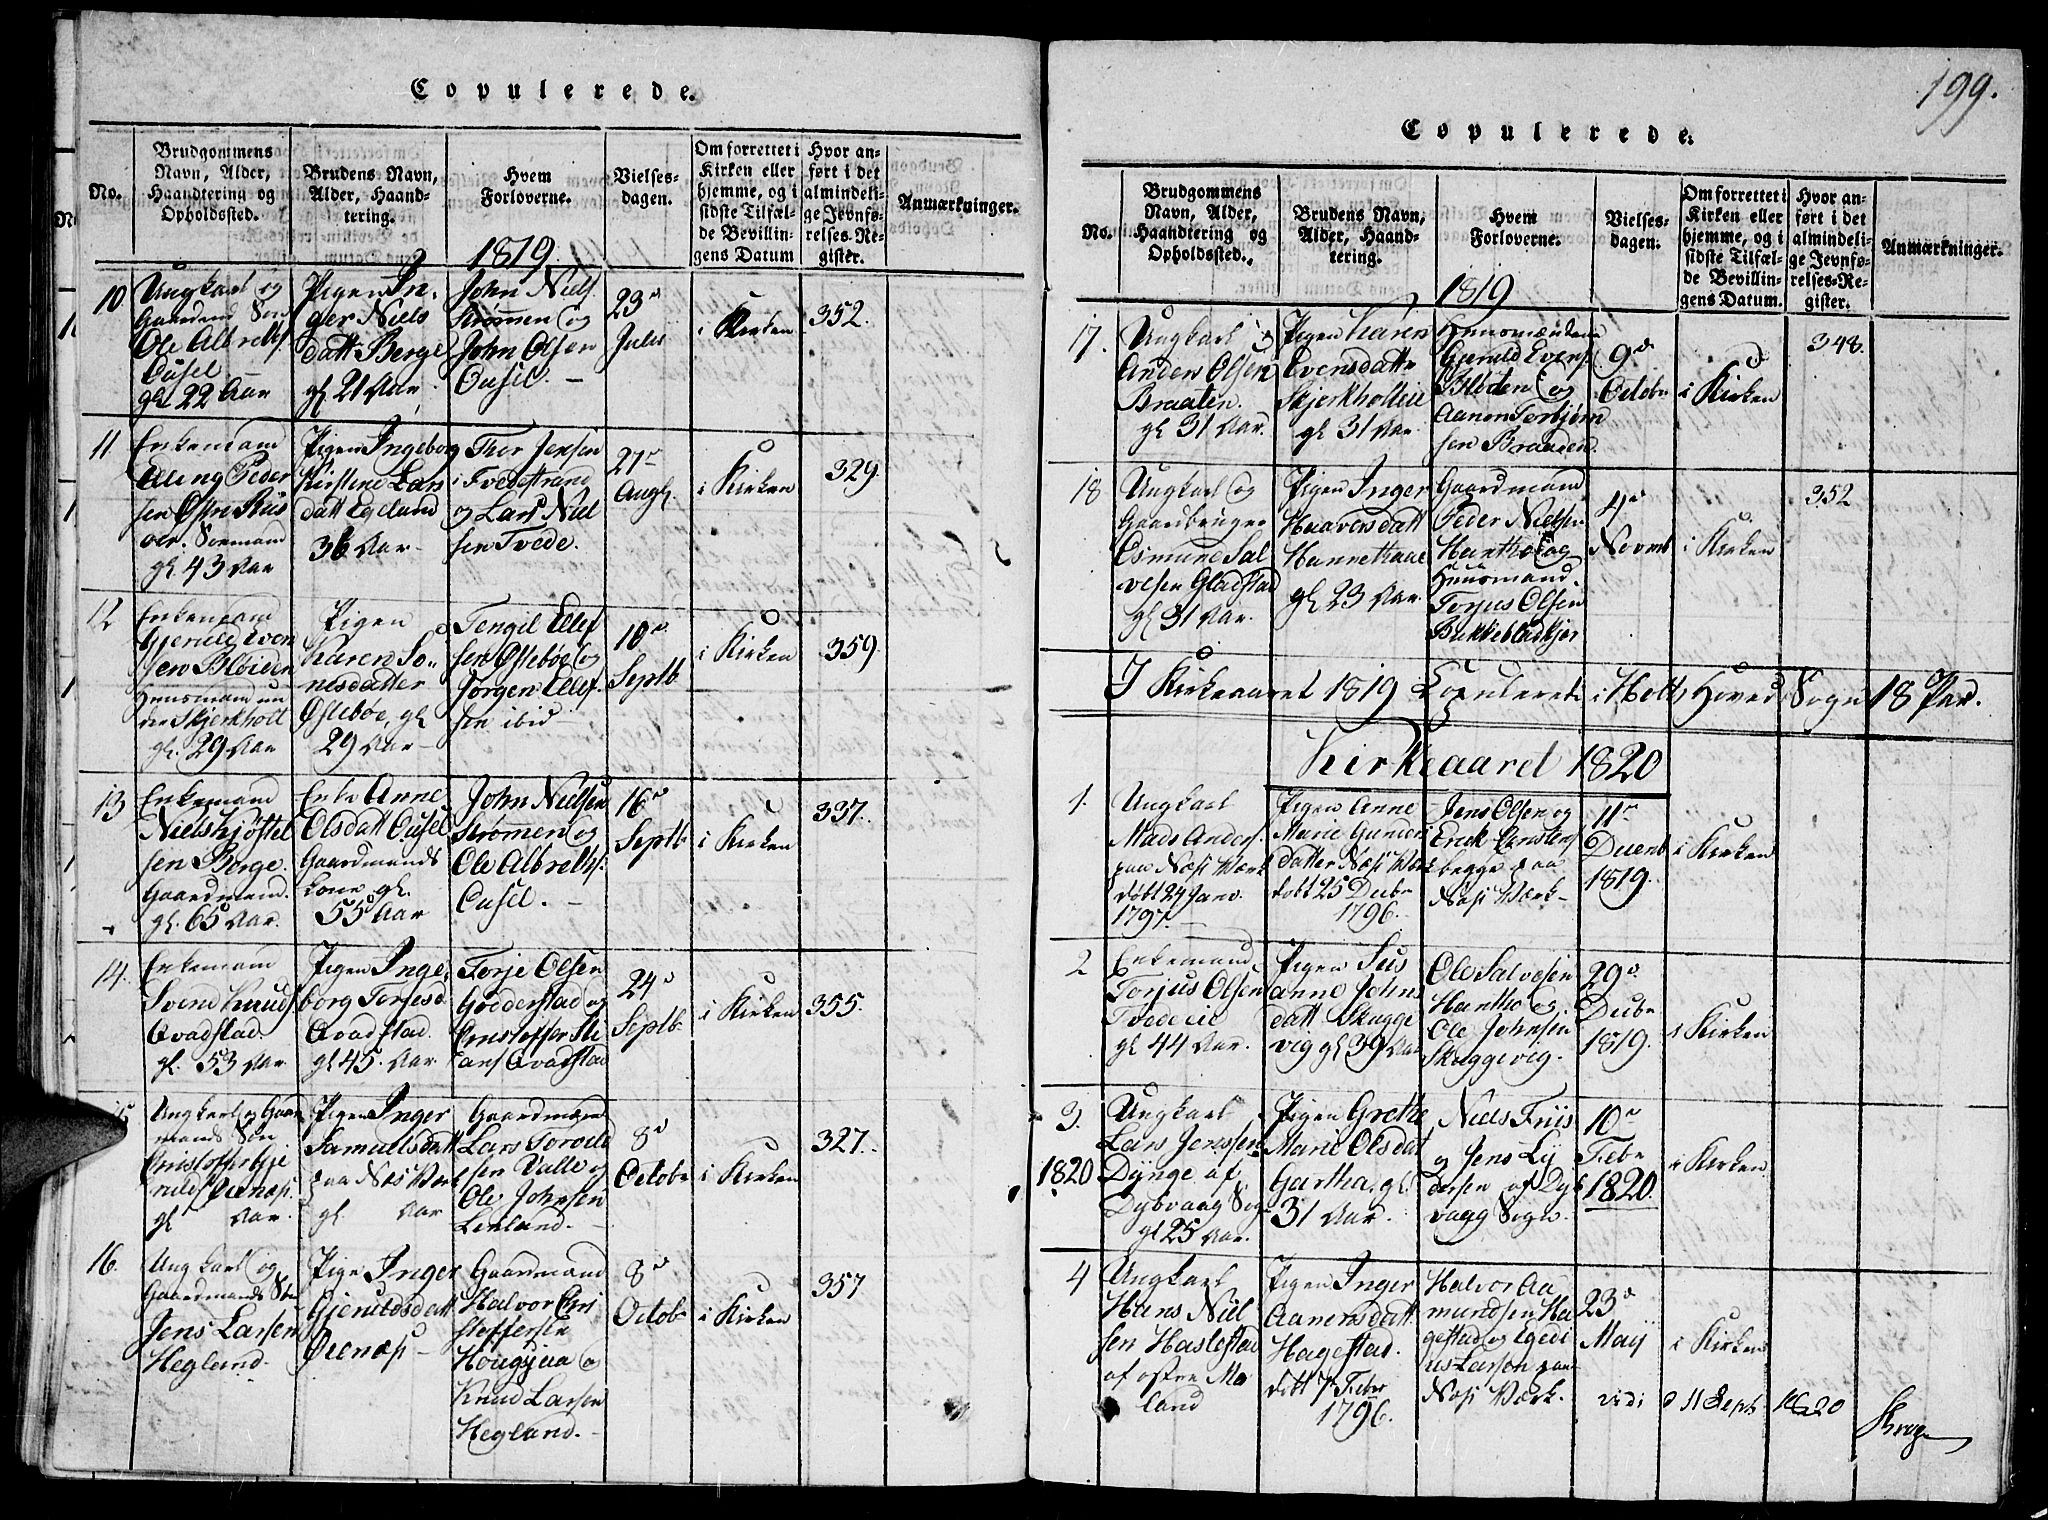 Copulerede.
No.
Brudgommens
Navn, Alder,
Haandtering og
Opholdssted.
Brudens Navn,
Alder, Haand-
tering.
Hvem
Forloverne.
Vielses-
dagen.
Om forrettet i
Kirken eller
hjemme, og i
sidste Tilfæl-
de Bevillin-
gens Datum
Hvor an-
ført i det
almindeli-
ge Jevnfø-
relses-Re-
gister.
Anmærkninger.
1819
10
Ungkarl og
Gaardens Søn
Ole Albrethsf.
Ousel
gl. 22 Aar
Pigen In-
ger Niels
datt Berge
gl 21 Aar
John Nielf
Strømmen og
John Olsen
Ousel. –
23d
Julii
i Kirken
352.
11
Enkemand
Peder
sen Østre Riis
øer. Søemand
gl. 43 Aar
Pigen Ingeborg
Kirstine Lars
datt Egeland
36 Aar
Thor Jensen
i Tvedestrand
og Lars Niel
sen Tvede.
27de
Augf.
i Kirken
329.
12
Enkemand
Gjeruld Even
sen Bløden
Huusmand un
der Skjerkholt
gl. 29 Aar
Pigen
Karen To-
nesdatter
Østebøe, gl
29 Aar
Tengil Ellef
sen Østebøe og
Jørgen Ellef-
sen ibid
10d
Septb.
i Kirken
359.
13
Enkemand
Niels Kjøstel
sen Berge.
Gaardmand.
gl. 65 Aar.
Enke Anne
Olsdatt Ousel
Gaardmands
kone gl.
55 Aar
John Nielsen
Strømmen og
Ole Albrethsf.
Ousel. –
16d
Septb
i Kirken
337.
14.
Enkemand
Svend Knuds
Qvadstad.
gl. 53 Aar
Pigen Inge
borg Terjesd.
Qvadstad.
gl 45. Aar
Torje Olsen
Godderstad og
Christoffer Sti
ans Qvadstad
24d
Septb.
i Kirken
355.
15
Ungkarl og Gaard
mands Søn
Christoffer Gje
rulds Ørenæs.
gl Aar.
Pigen Inger
Samuelsdatt
paa Næs Værk
gl. Aar
Gaardmand
Lars Torvild
sen Valle og
Ole Johnsen
Lenland. –
8d
Octobr
i Kirken
327.
16.
Ungkarl og
Gaardmands Søn
Jens Larsen
Hegland.
Pige Inger
Gjeruldsdatt
Ørenæs –
Gaardmand
Halvor Chri
stoffersen
Hougjaa og
Knud Larsen
Hegland. –
8d
Octobr
i Kirken
357
199.
Copulerede.
No.
Brudgommens
Navn, Alder,
Haandtering og
Opholdssted.
Brudens Navn,
Alder, Haand-
tering.
Hvem
Forloverne.
Vielses-
dagen.
Om forrettet i
Kirken eller
hjemme, og i
sidste Tilfæl-
de Bevillin-
gens Datum.
Hvor an-
ført i det
almindeli-
ge Jevnfø-
relses-Re-
gister.
Anmærkninger.
1819
17.
Ungkarl
Anders Olsen
Braaten.
gl 31 Aar.
Pigen Karen
Evensdatt
Skjerkholteie
gl 31 Aar.
Huusmændene
Gjeruld Evens
Bløden og
Aanon Torbjørn
sen Braaden.
9d
Octobr
i Kirken
348.
18
Ungkarl og
Gaardbruger
Osmund Sal
vesen Gladstad
gl 31 Aar.
Pigen Inger
Haavorsdatt
Hannethaae
gl 23 Aar.
Gaardmand
Peder Nielsen
Hantho og
Huusmand.
Torjus Olsen
Bukkebladkjær
4d
Novmb
i Kirken
352
I Kirkeaaret 1819 Copulerede i Holts Hoved Sogn 18 Par.
Kirkeaaret 1820
1.
Ungkarl
Mads Anders.
paa Næss Værk
døbt 24 Janv.
1797. –
Pigen Anne
Marie Gunders
datter Næss Værk
døbt 25 Decbr
1796.
Jens Olsen og
Erick Carstens
begge paa
Næss Værk –
11te
Decmb
1819.
i Kirken
2
Enkemand
Torjus Olsen
Tvede eie
gl 44 Aar.
Pigen Sus
anne Johns
datt Skugge
vig gl 39 Aar
Ole Salvesen
Hantho og
Ole Johnsen
Skuggevig.
29d.
Decbr
1819.
i Kirken
3.
1820
Ungkarl
Lars Jenssen
Dynge af
Dybvaag Sogn
gl 25 Aar.
Pigen Grethe
Marie Olsdat
Gartha, gl.
31 Aar.
Niels Friis
og Jens Ly
dersen af Dyb
vaag Sogn.
10de
Febr
1820.
i Kirken
4
Ungkarl
Hans Niel
sen Haslestad
af østre Mo
land
Pigen Inger
Aanensdatt.
Hagestad.
døbt 7 Febr
1796.
Halvor Aa
mundsen Ha
gestad og Egedi
us Larsen paa
Næss Værk.
23d
Maij
i Kirken
vidi d 11 Sept. 1820
Krog